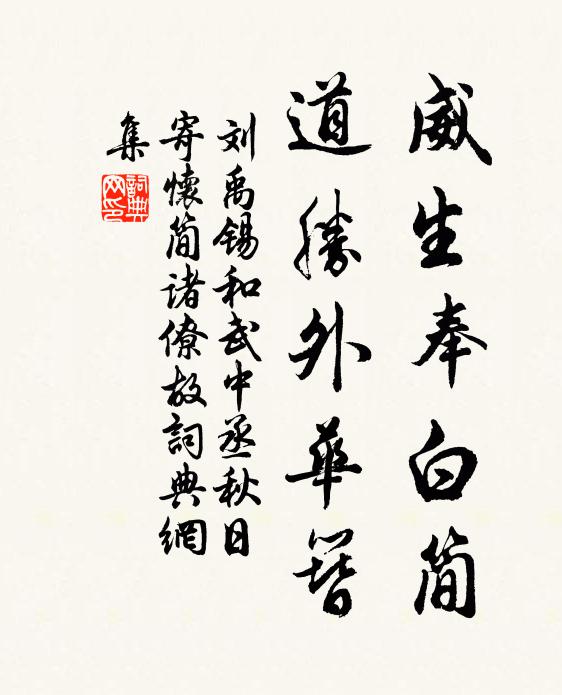 威生奉白简
道勝外華簪
刘禹锡和武中丞秋日
寄懷简诸僚故詞典網
集
詞典网印